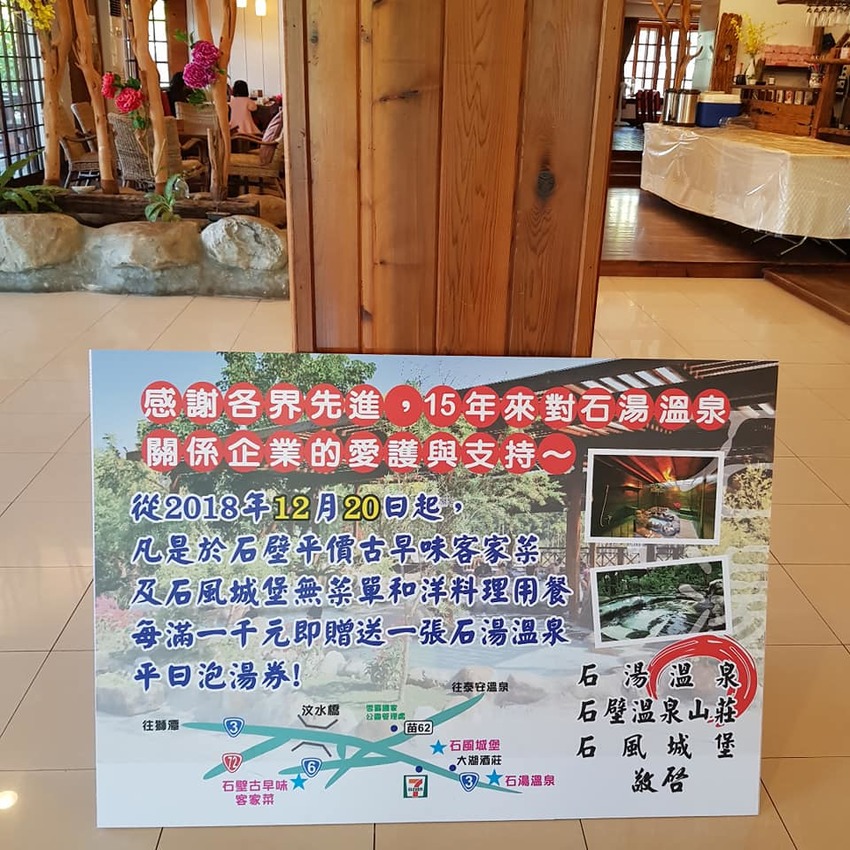 感謝各界先進，15年來對石湯溫泉
關係企業的愛護與支持～
從2018年12月20日起，
凡是於石壁平價古早味客家菜
及石風城堡無菜單和洋料理用餐
每滿一千元即贈送一張石湯溫泉
平日泡湯券!
石湯溫泉
石壁溫泉山莊
石風城堡
敬啓
往泰安溫泉
汶水橋
雪霸國家
公園管理處
往獅潭
3
苗62
石風城堡
72
6
大湖酒莊
石壁古早味
客家菜
7
ELEVEN
3
石湯溫泉